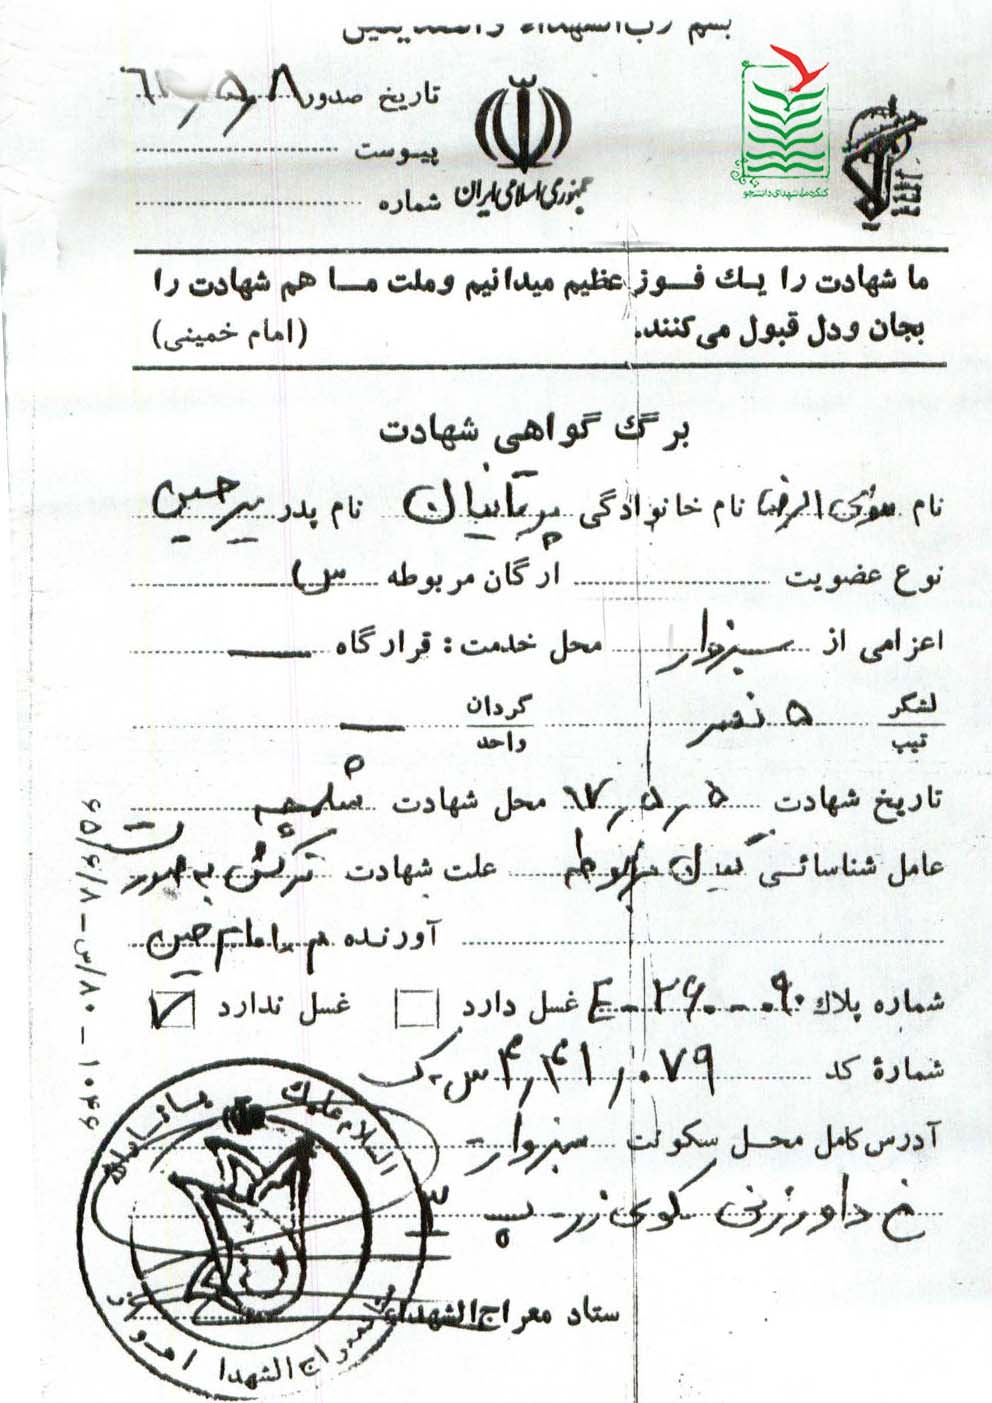 بسم رب الشهداء والصدیقین
تاریخ صدور ۶۷٫۵٫۸
پیوست
شماره
جمهوری اسلامی ایران
کنگره ملی شهدای دانشجو
ما شهادت را یک فوز عظیم میدانیم و ملت ما هم شهادت را
بجان و دل قبول می‌کنند. (امام خمینی)
برگ گواهی شهادت
نام موسی الرضا نام خانوادگی پرتانیان نام پدر میرحسین
نوع عضویت ارگان مربوطه س
اعزامی از سبزوار محل خدمت: قرارگاه —
لشکر تیپ ۵ نصر گردان واحد —
تاریخ شهادت ۶۷٫۵٫۵ محل شهادت شلمچه
عامل شناسائی علت شهادت ترکش به صورت
آورنده م امام حسین
شماره پلاک E-۲۶۰-۰۹۰ غسل دارد غسل ندارد ✓
شمارهٔ کد ۴٫۴۱٫۰۷۹
آدرس کامل محل سکونت سبزوار -
خ داورزنی کوی زر پ ۳
ستاد معراج الشهداء
السلام علیک
معراج الشهدا اهواز
۱۰۴۶ – ۸۰/س/۶۵/۶/۸